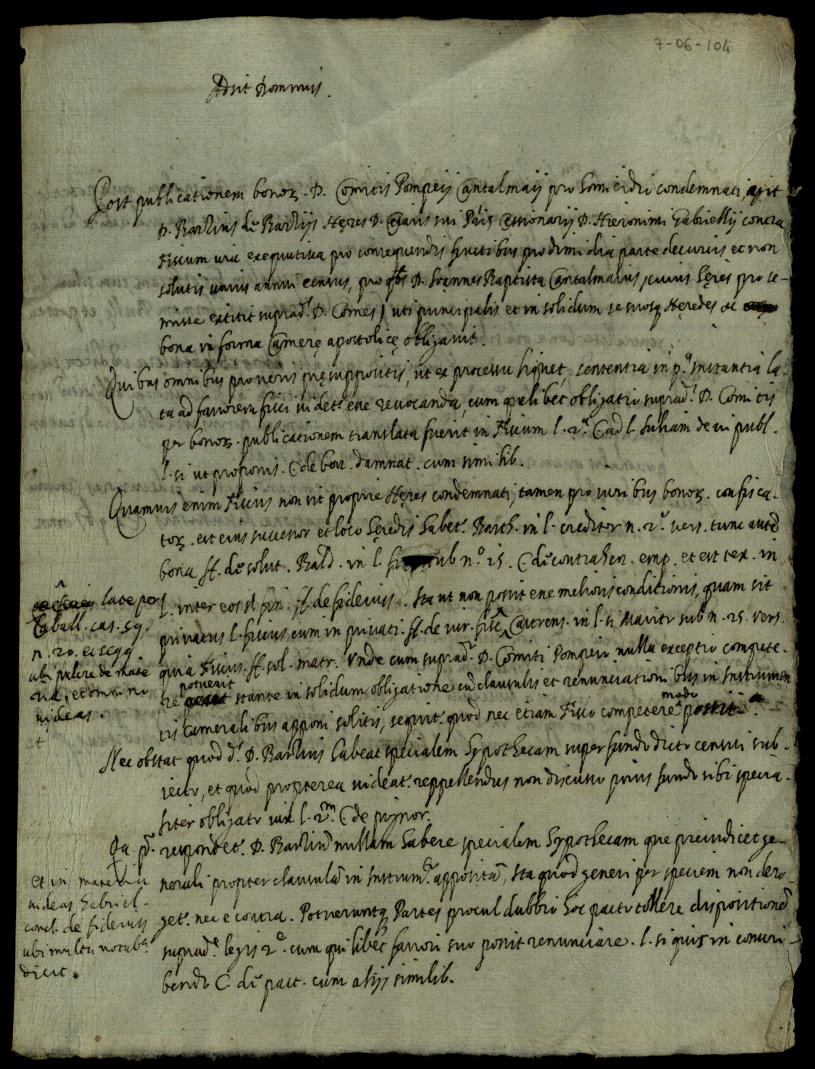 7-06-104
Adsit Dominus.
Post publicationem bonor. D. Comitis Pompeij Cantalmaij pro homicidio condemnati, agit
D. Barlius de Barlijs Heres D. sui Pris Cessionarij D. Hieronimi Gabriellij contra
Fiscum via exequutiva pro consequendis fructibus pro dimidia parte decursis et non
solutis unius annui census, pro qbs D. Joannes Baptista Cantalmaius, cuius heres pro se-
misse extitit suprad. D. Comes, uti principalis et in solidum se suosq heredes ac
bona in forma Camere apostolice obligavit.
Quibus omnibus pro veris presuppositis, ut ex processu liquet, sententia in p.a instantia la-
ta ad favorem fisci videt. esse revocanda, cum quelibet obligatio suprad. D. Comitis
per bonor. publicationem translata fuerit in Fiscum l. 2.a C ad l. Juliam de vi publ.
l. si ut proponis. C de bon. damnat. cum simihb.
Quamvis enim Fiscus non sit proprie Heres condemnati, tamen pro viribus bonor. confisca-
tor. est eius successor et loco heredis habet. Barth. in l. creditor n. 2.o vers. tunc
bona ff. de solut. Bald. in l. sub n.o 15. C de contrahen. emp. et est tex. in
l. inter eos ff. de fideius. Ita ut non possit esse melioris conditionis, quam sit
privatus l. fiscus cum in privati. ff. de iur. fisc. Castrens. in l. si Marito sub n. 25. vers.
quia Fiscus. ff. sol. matr. Unde cum suprad. D. Comiti Pompeio nulla exceptio compete-
re potuerit stante in solidum obligatione cu clausulis et renunciationibus in Instrumen
tis Cameralibus apponi solitis, sequit. quod nec etiam Fisco competere modo possit.
late per
Caball. cas. 59.
n. 20. et seqq
ubi pulcre de mate
ria, et omnino
videas.
Nec obstat quod d. D. Barlius habeat specialem hypothecam super fundo dicto censui sub-
iecto, et quod propterea videat. reppellendus non discusso prius fundo sibi specia-
liter obligato iux. l. 2.m C de pignor.
Qa p.o respondet. D. Barliu nullam habere specialem hypothecam que preiudicet ge-
nerali propter clausula in Instrum.to apposita, Ita quod generi per speciem non dero
get. nec e contra. Potueruntq Partes procul dubbio hoc pacto tollere dispositione
suprad.e legis 2.e cum quilibet favori suo possit renunciare. l. si quis in conscri-
bendo C de pact. cum alijs similib.
et in materia
videas Gabriel.
concl. de fideius
ubi multa notab.a
dicit.